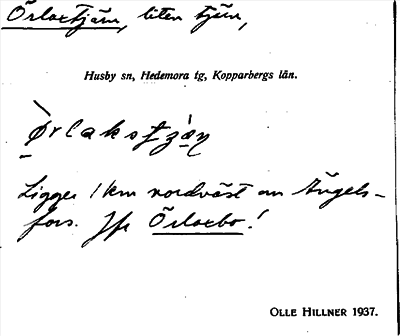 Örlaxtjärn, liten tjärn,
Husby sn, Hedemora tg, Kopparbergs län.
Ligger 1 km nordväst om Ängels-
fors. Jfr Örlaxbo!
OLLE HILLNER 1937.